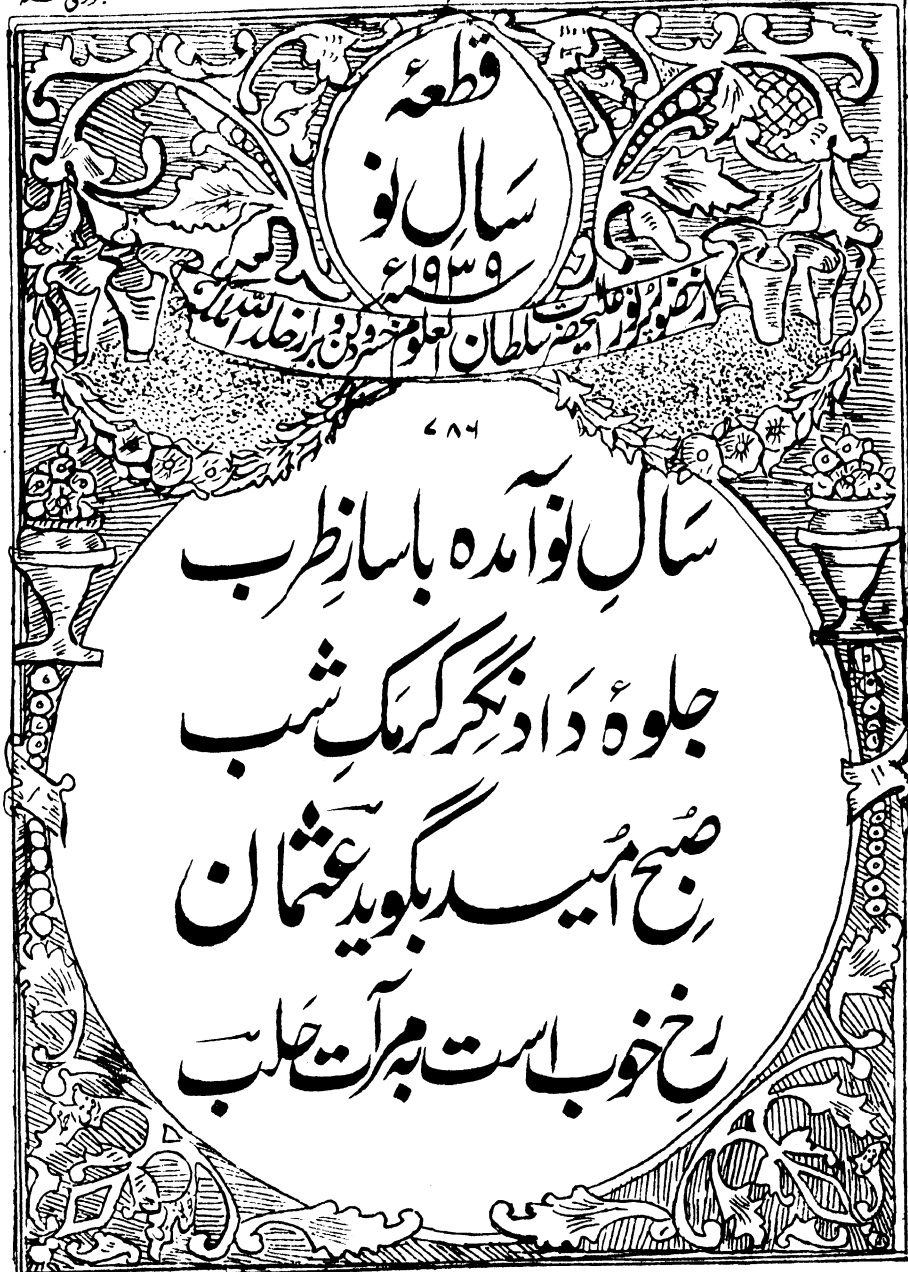 قطعۂ
سالِ نو
سنہ ۱۹۳۹ء
از حضور پرنور اعلیحضرت سلطان العلوم خسرو دکن و برار خلد اللہ ملکہ
۷۸۶
سَالِ نو آمدہ با سازِ طرب
جلوۂ دَاد نِگر کرمَکِ شب
صُبحِ اُمید بگوید عثمان
رخِ خوب است بہ مرآت حَلب